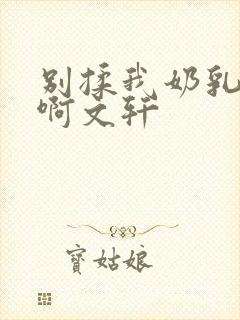 别揉我奶乳
啊文轩
寳姑娘